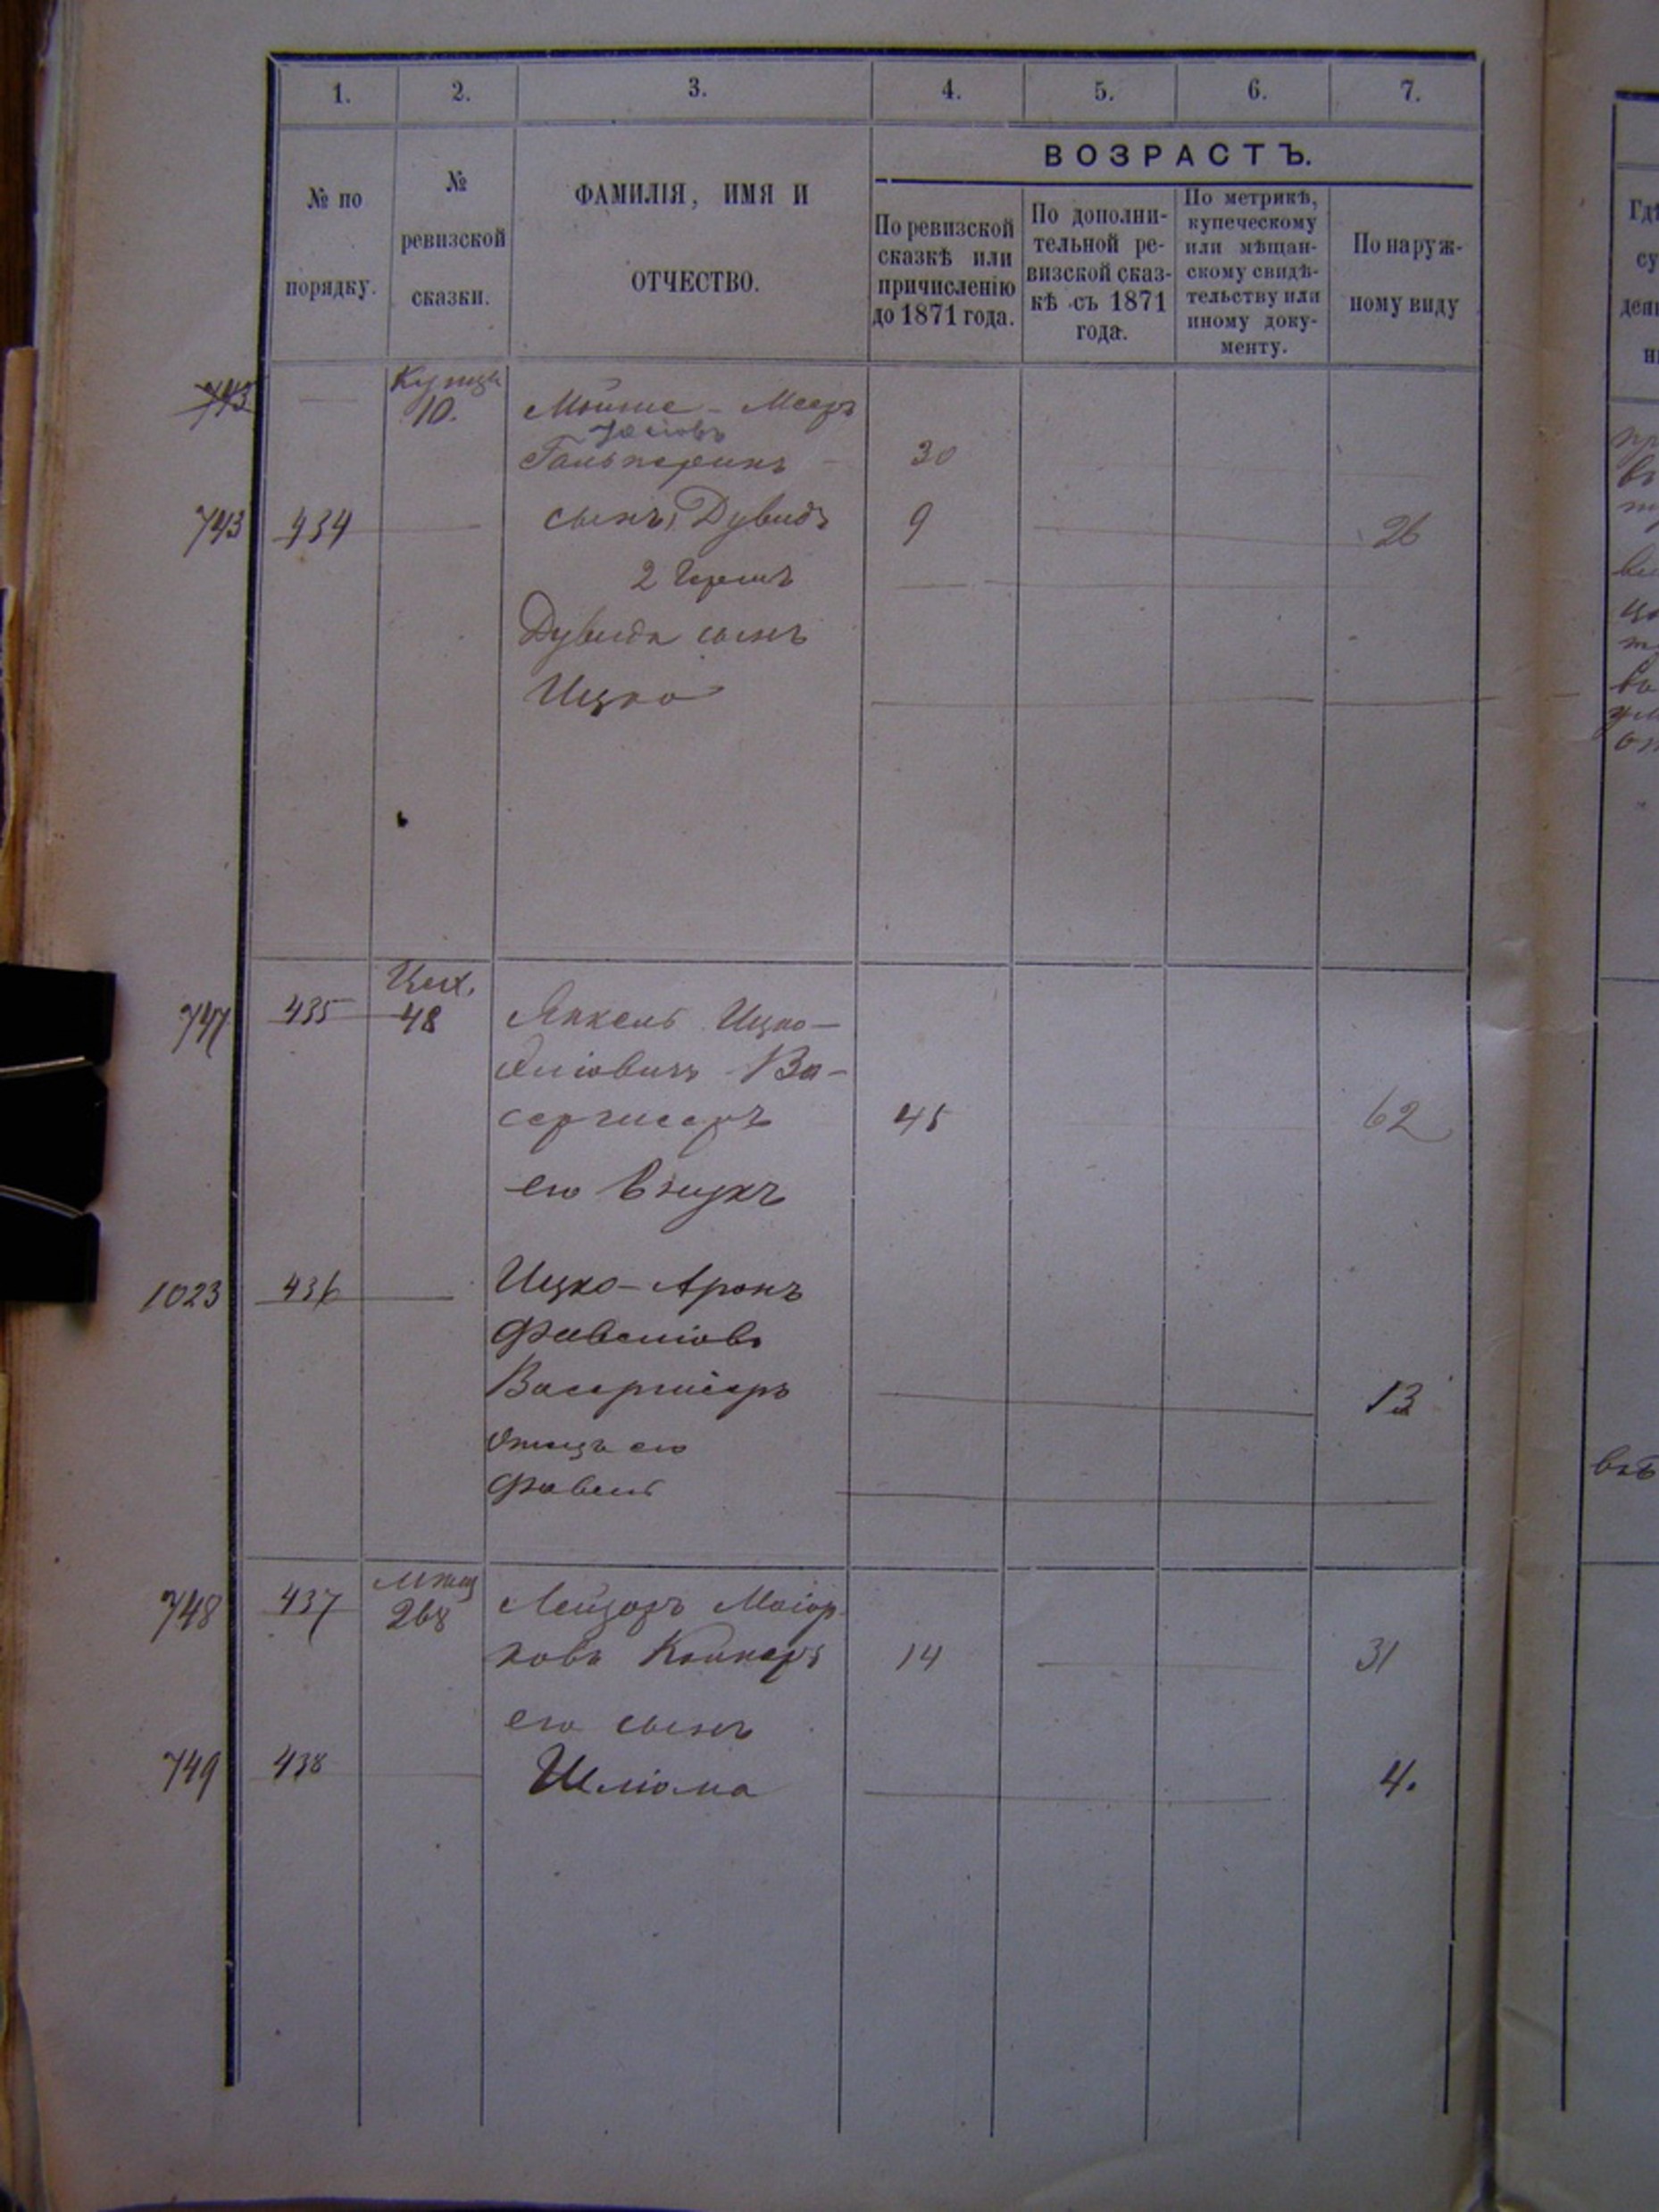 1. 2. 3. 4. 5. 6. 7.
№ по порядку.
№ ревизской сказки.
ФАМИЛІЯ, ИМЯ И ОТЧЕСТВО.
ВОЗРАСТЪ.
По ревизской сказкѣ или причисленію до 1871 года.
По дополни-
тельной ре-
визской сказ-
кѣ съ 1871
года.
По метрикѣ,
купеческому
или мѣщан-
скому свидѣ-
тельству или
иному доку-
менту.
По наруж-
ному виду
743 10. Мойше - Мееръ
Гальперинъ 30
743 434 сынъ 1 Дувидъ 9 26
2 Гершъ
Дувида сынъ
Ицко
Цех.
747 435 48 Янкель Ицко-
Ва-
сергисеръ 45 62
его внукъ
1023 436 Ицко-Аронъ
Файвеліовъ
Васергисеръ 13
Отецъ его
Файвель
Мѣщ
748 437 268 Лейзоръ Маіор-
ковъ 14 31
его сынъ
749 438 Шліома 4.